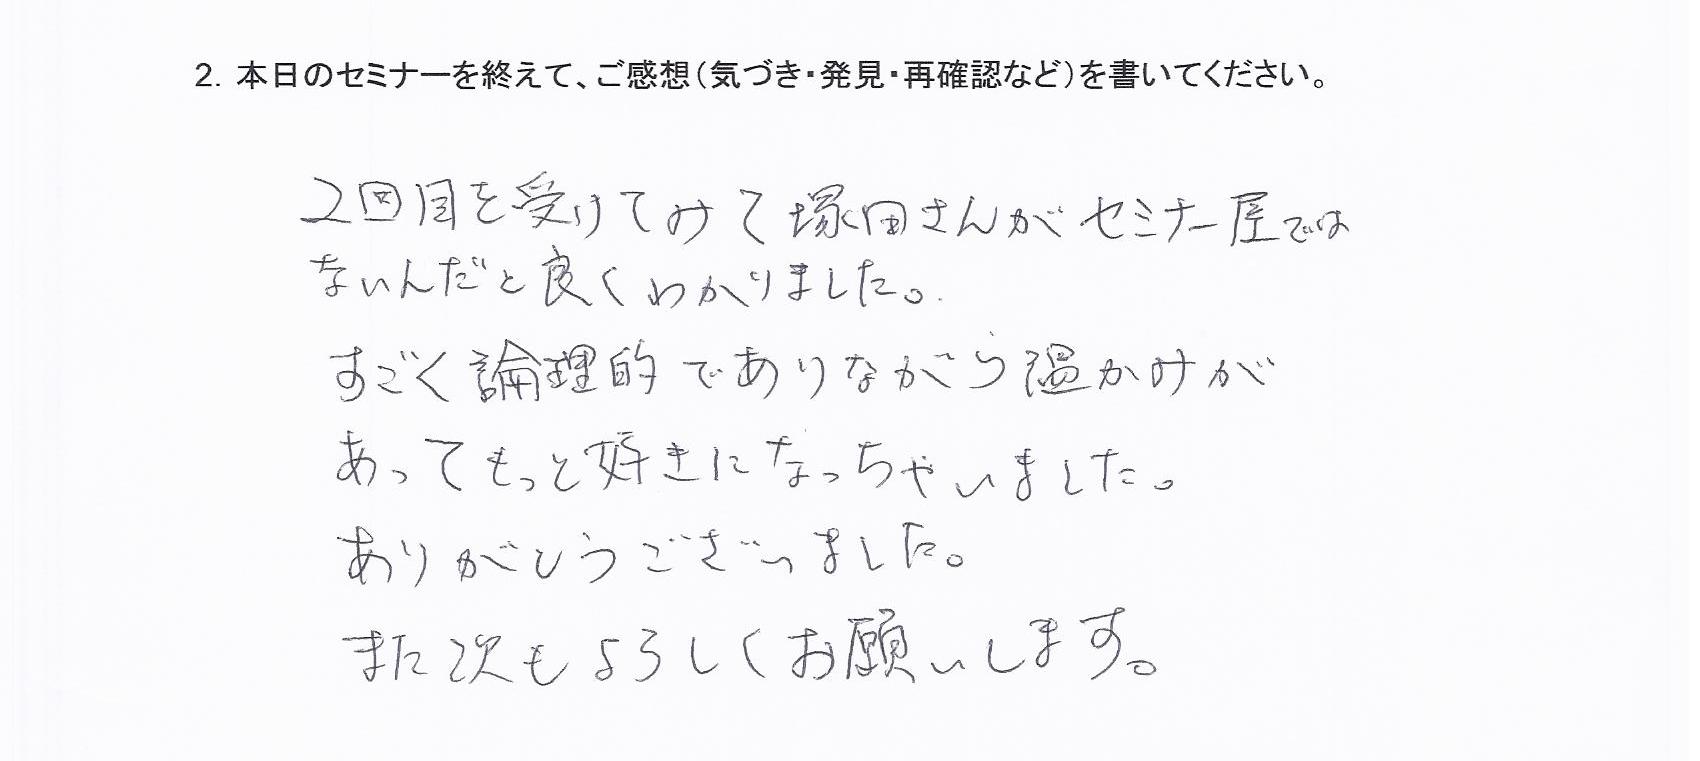 2. 本日のセミナーを終えて、ご感想(気づき・発見・再確認など)を書いてください。
2回目を受けてみて塚田さんがセミナー屋では
ないんだと良くわかりました。
すごく論理的でありながら温かみが
あってもっと好きになっちゃいました。
ありがとうございました。
また次もよろしくお願いします。